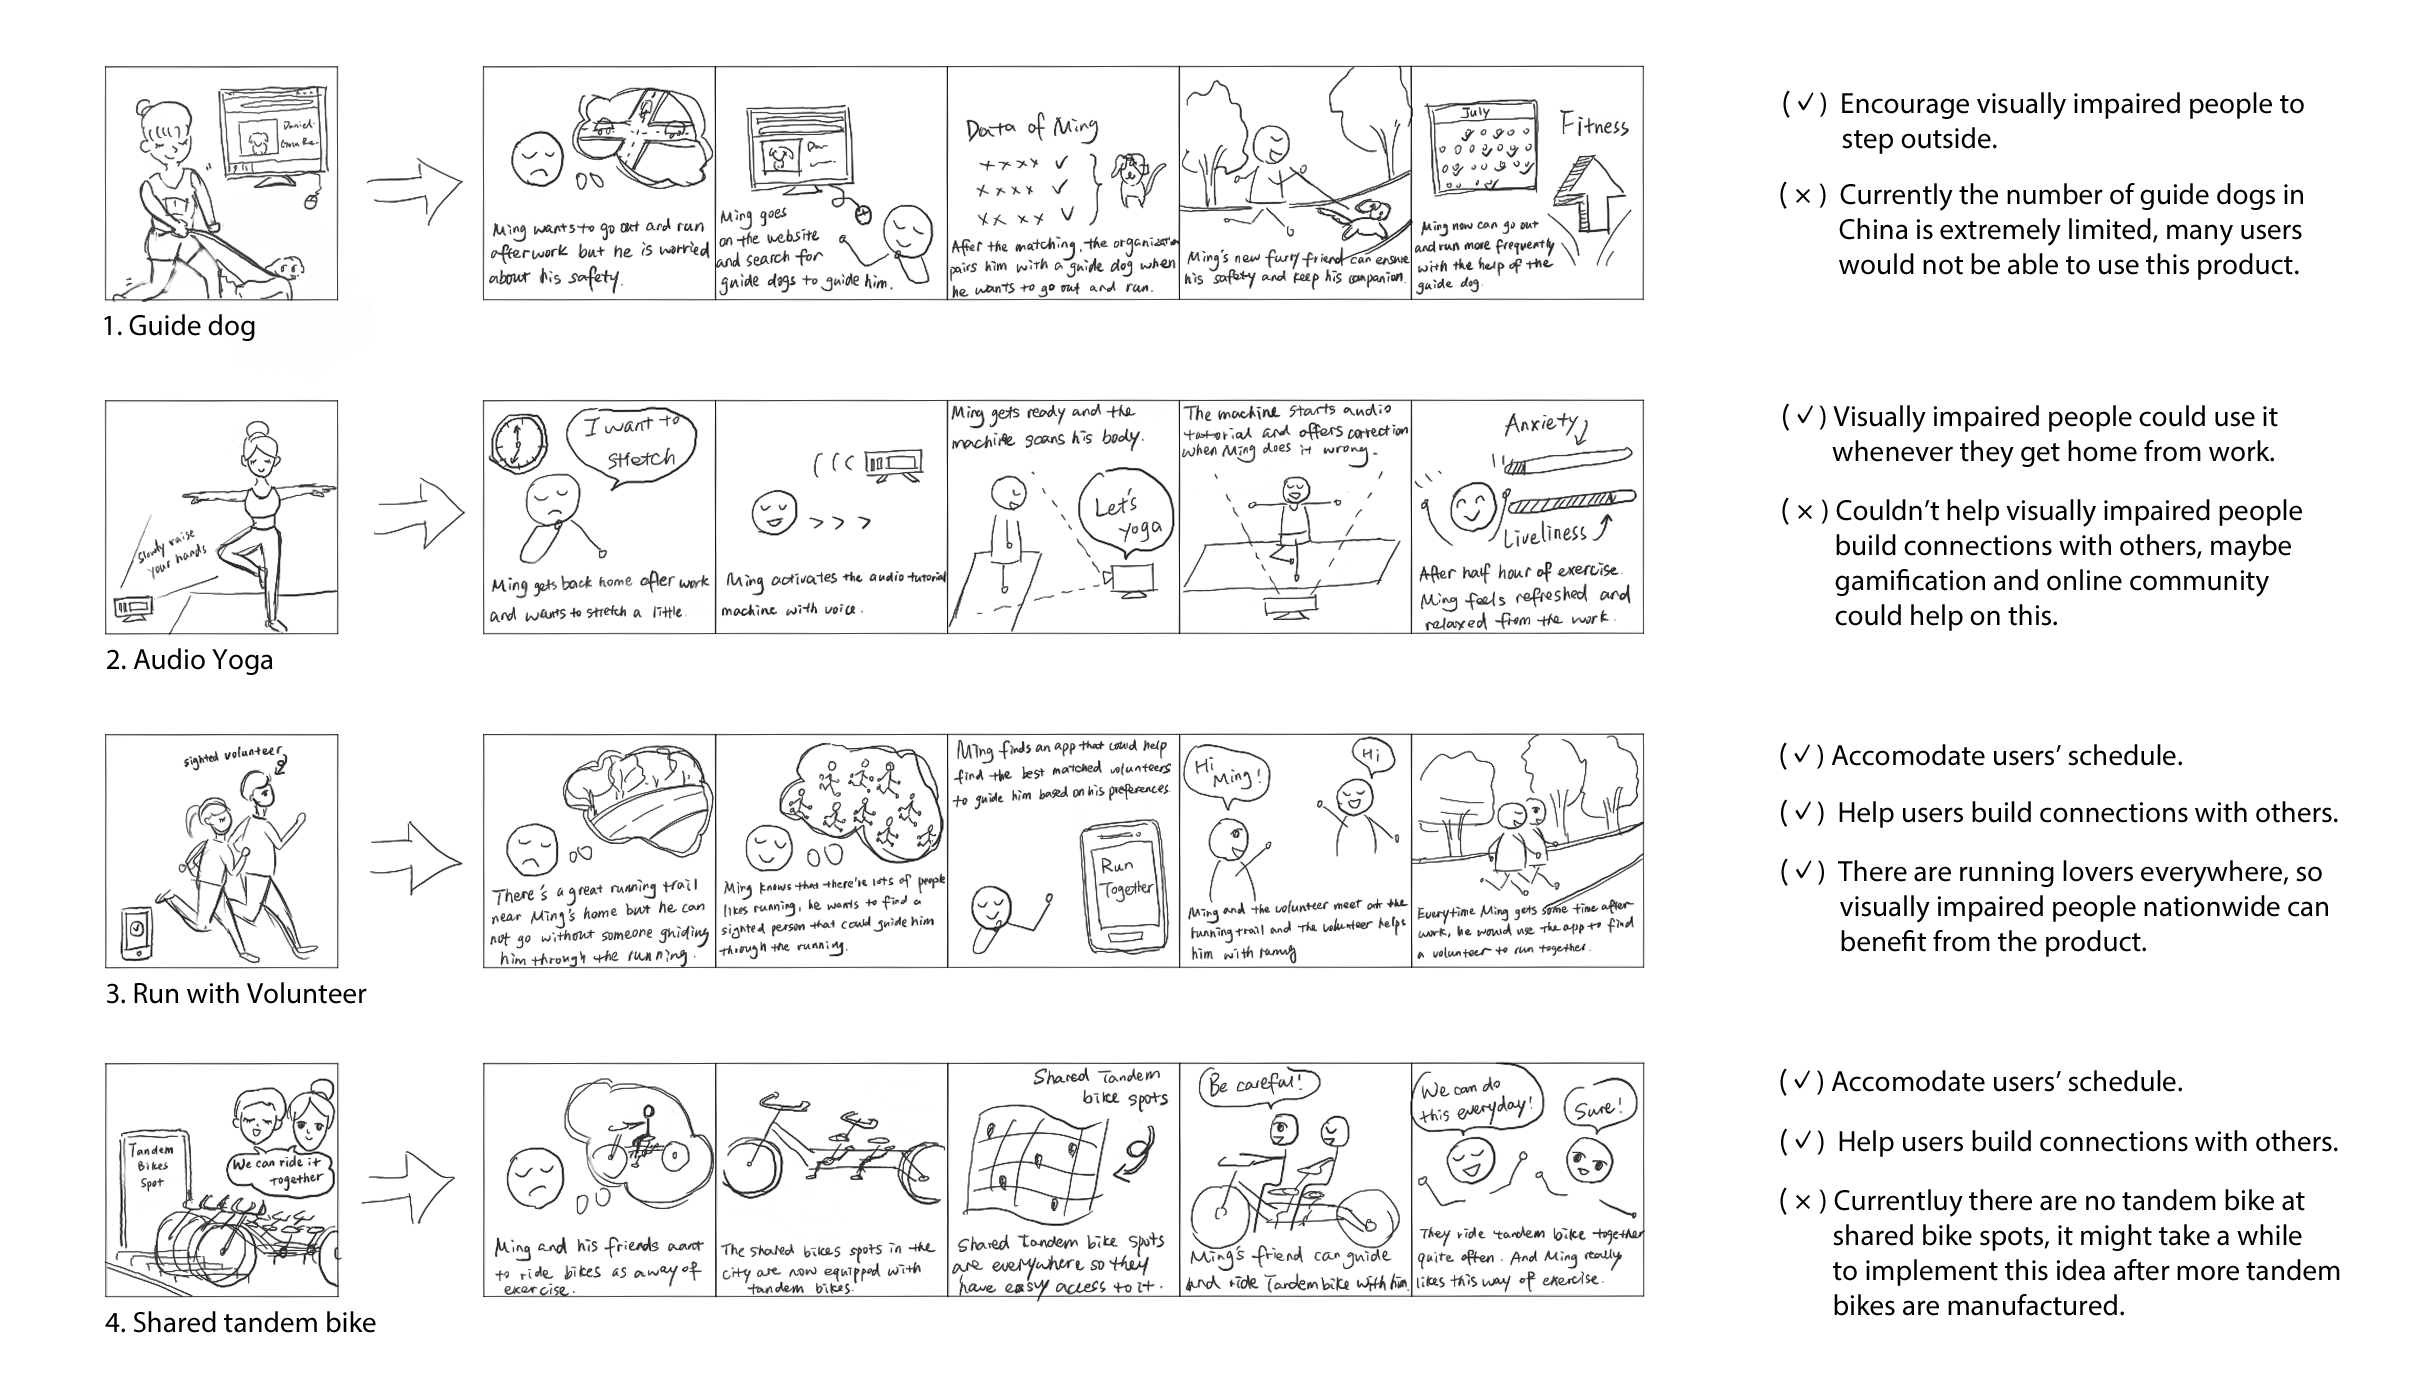 Daniel
July
Fitness
Data of Ming
xxxx ✓
xxxx ✓
xx xx ✓
Ming wants to go out and run
after work but he is worried
about his safety.
Ming goes
on the website
and search for
guide dogs to guide him.
After the matching, the organization
pairs him with a guide dog when
he wants to go out and run.
Ming's new furry friend can ensure
his safety and keep his companion.
Ming now can go out
and run more frequently
with the help of the
guide dog.
1. Guide dog
(✓) Encourage visually impaired people to
step outside.
(×) Currently the number of guide dogs in
China is extremely limited, many users
would not be able to use this product.
slowly raise
your hands
2. Audio Yoga
I want to
stretch
Ming gets back home after work
and wants to stretch a little.
Ming activates the audio tutorial
machine with voice.
Ming gets ready and the
machine scans his body.
Let's
yoga
The machine starts audio
tutorial and offers correction
when Ming does it wrong.
Anxiety
Liveliness
After half hour of exercise
Ming feels refreshed and
relaxed from the work.
(✓) Visually impaired people could use it
whenever they get home from work.
(×) Couldn't help visually impaired people
build connections with others, maybe
gamification and online community
could help on this.
sighted volunteer
3. Run with Volunteer
There's a great running trail
near Ming's home but he can
not go without someone guiding
him through the running.
Ming knows that there're lots of people
likes running, he wants to find a
sighted person that could guide him
through the running.
Ming finds an app that could help
find the best matched volunteers
to guide him based on his preferences.
Run
Together
Hi
Ming!
Hi
Ming and the volunteer meet at the
running trail and the volunteer helps
him with
Everytime Ming gets some time after
work, he would use the app to find
a volunteer to run together.
(✓) Accomodate users' schedule.
(✓) Help users build connections with others.
(✓) There are running lovers everywhere, so
visually impaired people nationwide can
benefit from the product.
Tandem
Bikes
Spot
We can ride it
together
4. Shared tandem bike
Ming and his friends want
to ride bikes as a way of
exercise.
The shared bikes spots in the
city are now equipped with
tandem bikes.
Shared Tandem
bike spots
Shared Tandem bike spots
are everywhere so they
have easy access to it.
Be careful!
Ming's friend can guide
and ride Tandem bike with him.
We can do
this everyday!
Sure!
They ride tandem bike together
quite often. And Ming really
likes this way of exercise.
(✓) Accomodate users' schedule.
(✓) Help users build connections with others.
(×) Currentluy there are no tandem bike at
shared bike spots, it might take a while
to implement this idea after more tandem
bikes are manufactured.